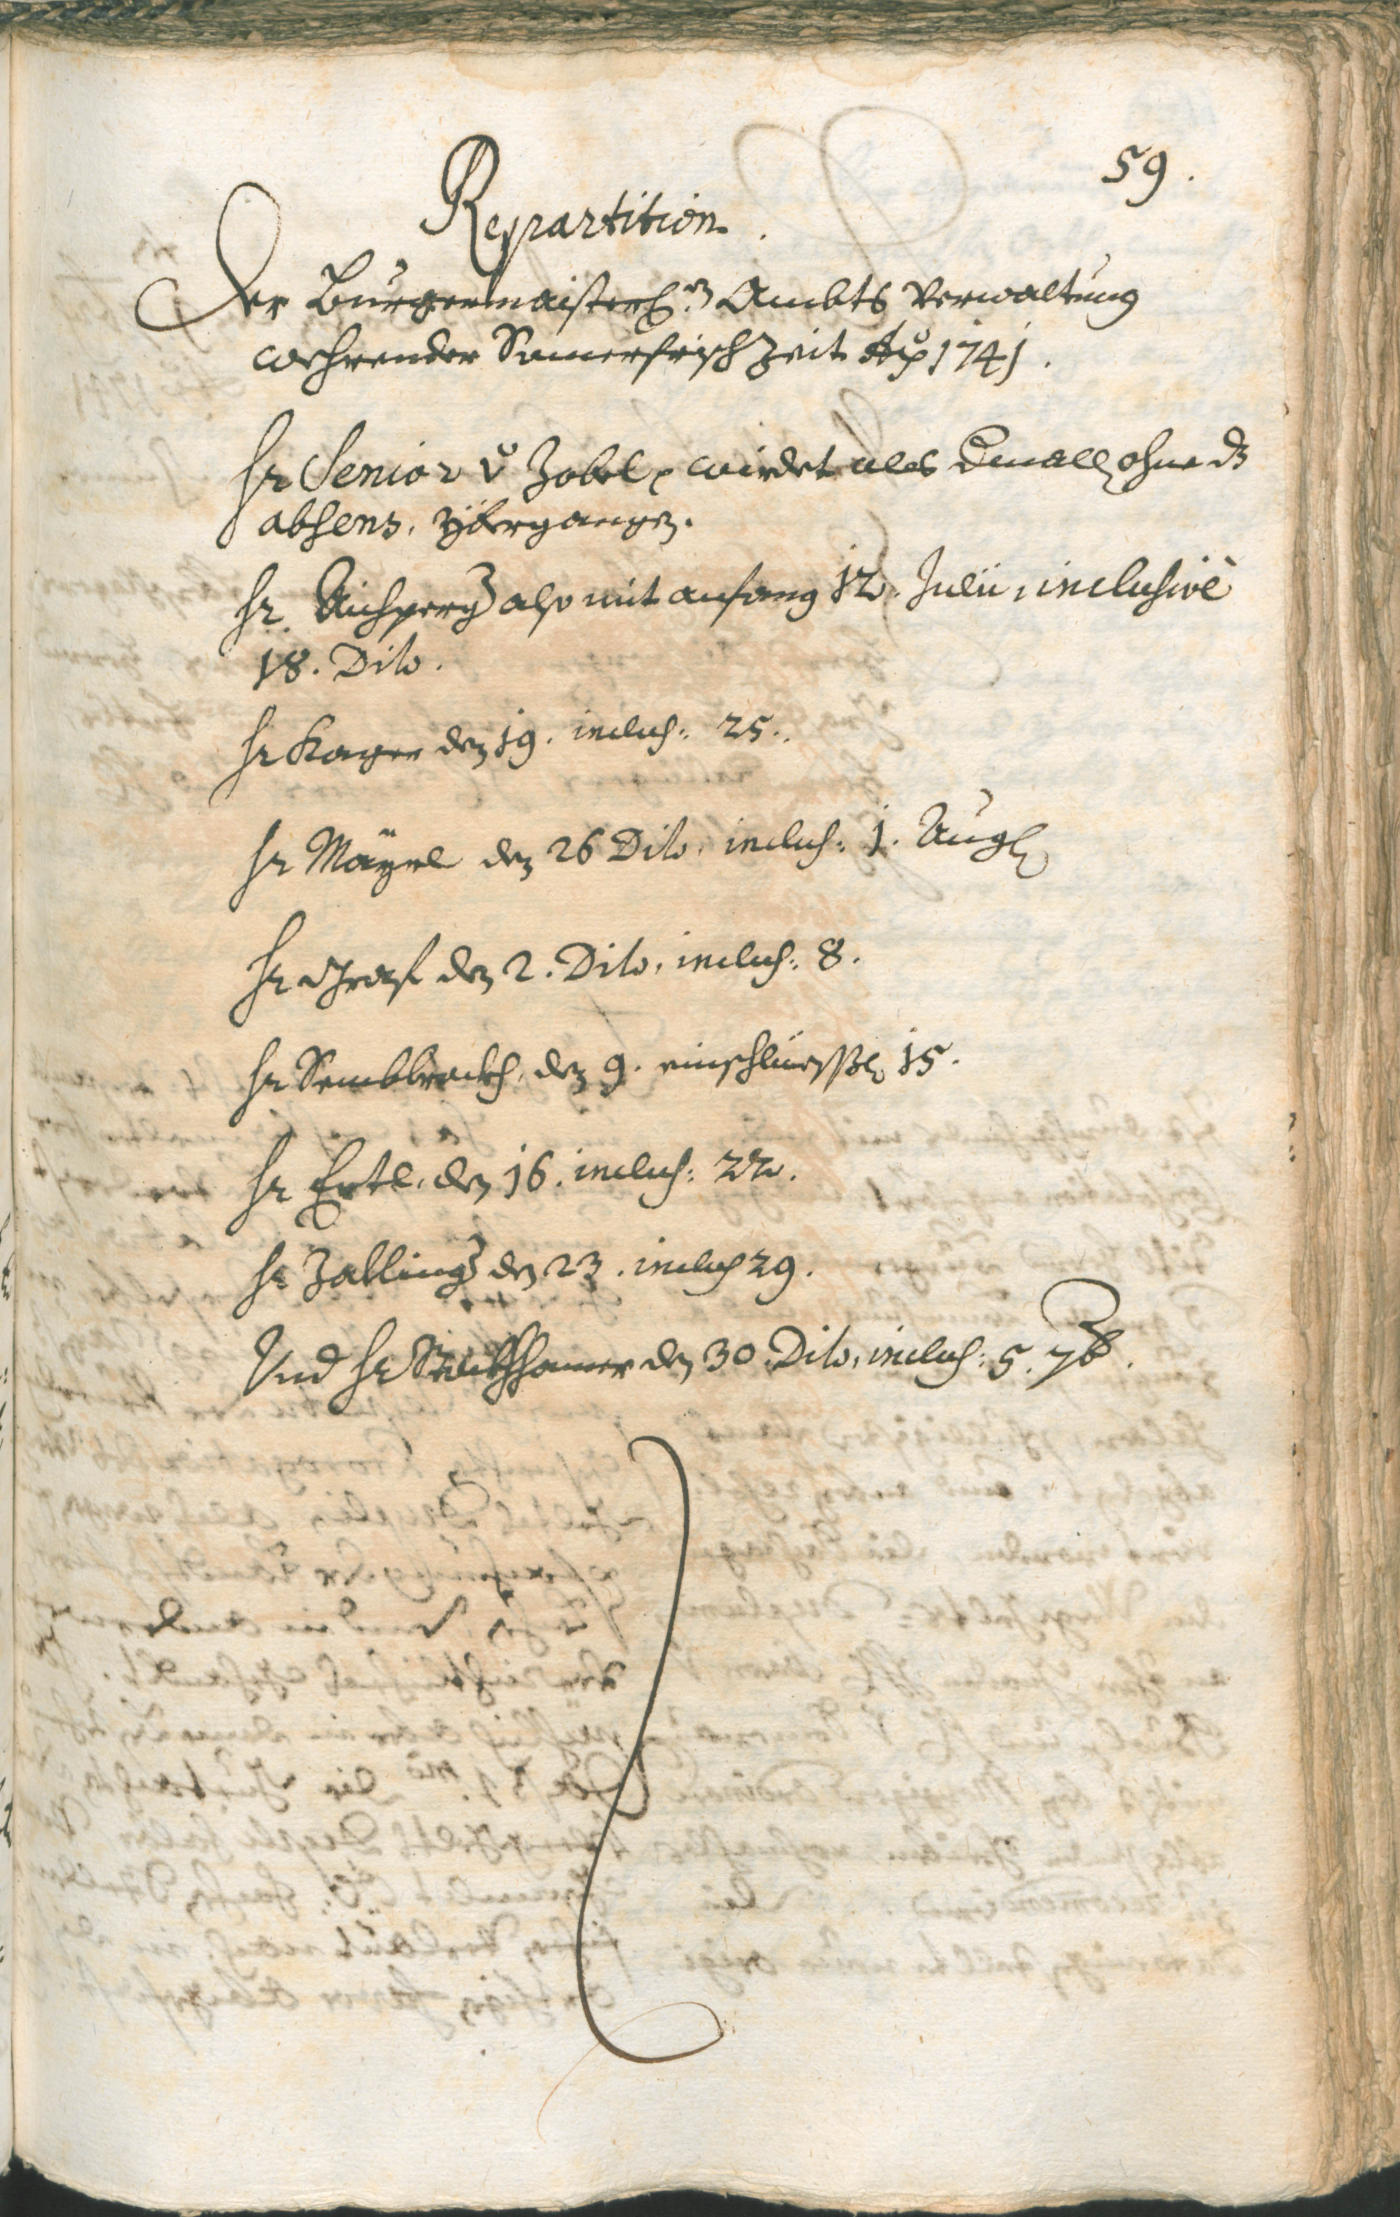 59.
Repartition.
Der Burgermaisterl: Ambts Verwaltung
wehrender Sumerfrisch Zeit Ao 1741.
Hr Senior v Zobel, wirdet als dermall ohne dz
absens, ybergangen.
Hr. Aichperg also mit anfang 12. Julii, inclusivè
18. Dito.
Hr Kager den 19. inclus: 25.
Hr Mäyrl den 26 Dito, inclus: 1. Aug
Hr Graf den 2. Dito, inclus: 8.
Hr Sembbrockh, den 9. einschliessl 15.
Hr Ertl, den 16. inclus: 22.
Hr Zallinger den 23. inclus 29.
Und Hr den 30. Dito, inclus: 5. 7b.